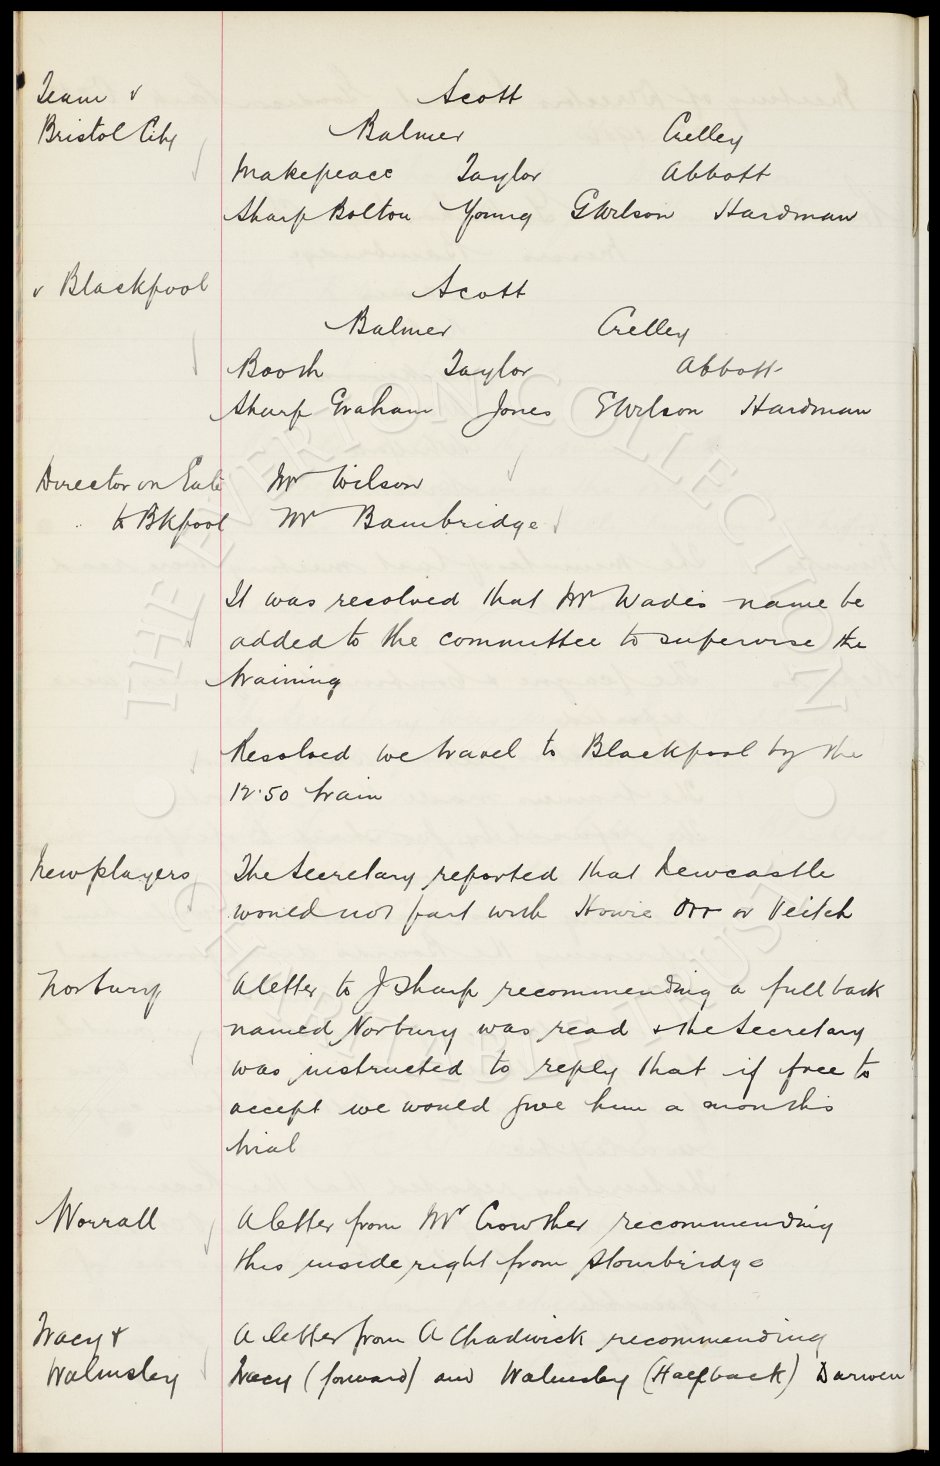 Team v Scott
Bristol City Balmer Crelley
Makepeace Taylor Abbott
Sharp Bolton Young GWilson Hardman
v Blackpool Scott
Balmer Crelley
Booth Taylor Abbott
Sharp Graham Jones GWilson Hardman
Director on Gate Mr Wilson
to Bkpool Mr Bainbridge
It was resolved that Mr Wades name be
added to the committee to supervise the
training
Resolved we travel to Blackpool by the
12.50 train
New players The Secretary reported that Newcastle
would not part with Howie Orr or Veitch
Norbury A letter to J Sharp recommending a full back
named Norbury was read & the Secretary
was instructed to reply that if free to
accept we would give him a months
trial
Worrall A letter from Mr Crowther recommending
this inside right from Stourbridge
Tracy & A letter from A Chadwick recommending
Walmsley Tracy (forward) and Walmsley (Halfback) Darwen
THE EVERTON COLLECTION